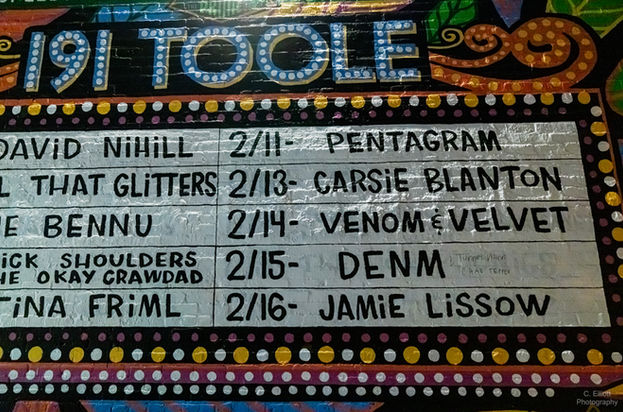 191 TOOLE
DAVID NIHILL 2/11- PENTAGRAM
L THAT GLITTERS 2/13- CARSIE BLANTON
E BENNU 2/14- VENOM & VELVET
ICK SHOULDERS
HE OKAY CRAWDAD 2/15- DENM
TINA FRIML 2/16- JAMIE LISSOW
C. Elliott
Photography